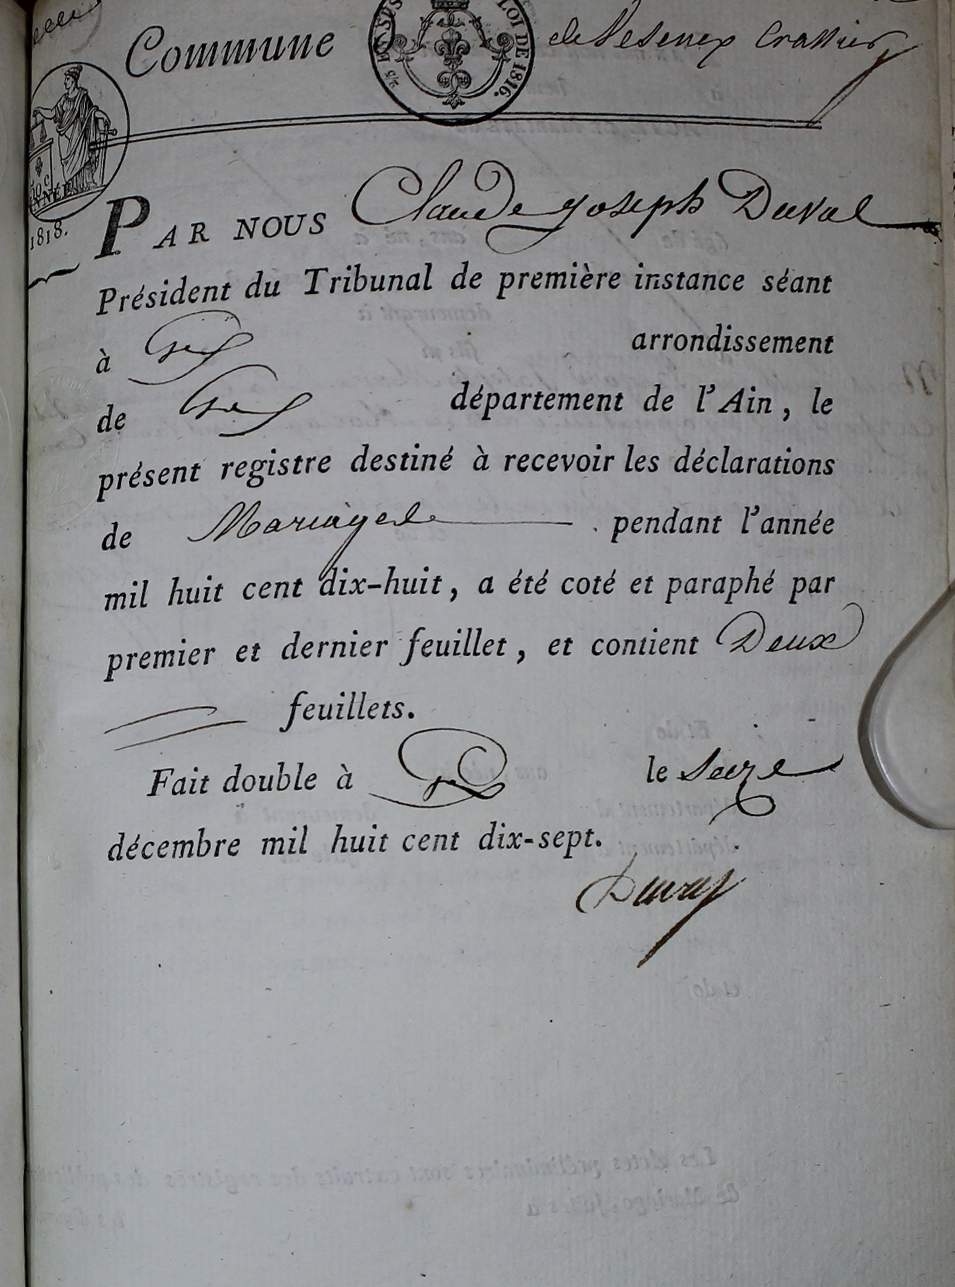 Commune de Vesenex Crassier
LOI DE 1816.
1818.
PAR NOUS Claude Joseph Duval
Président du Tribunal de première instance séant
à Gex arrondissement
de Gex département de l'Ain, le
présent registre destiné à recevoir les déclarations
de Mariages pendant l'année
mil huit cent dix-huit, a été coté et paraphé par
premier et dernier feuillet, et contient Deux
feuillets.
Fait double à Gex le Seize
décembre mil huit cent dix-sept.